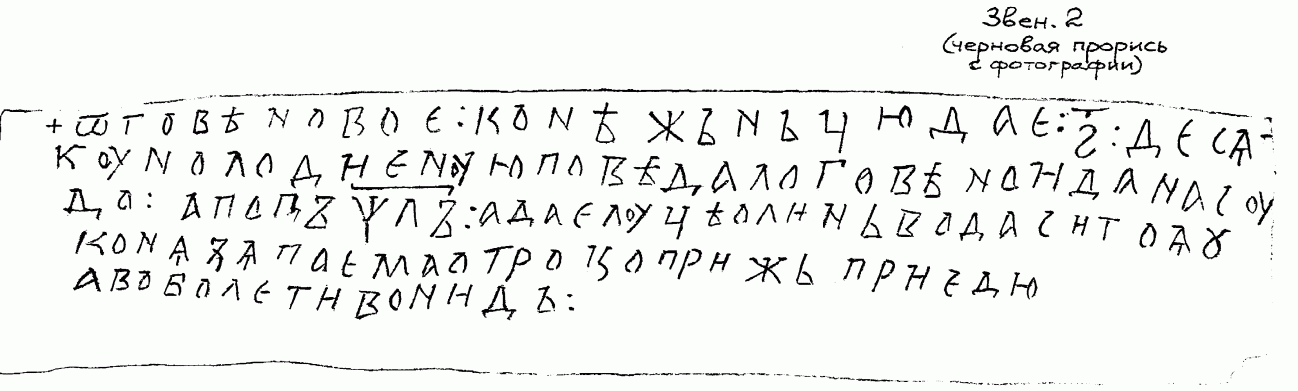 Звен. 2
(черновая прорись
с фотографии)
+ѾГОВѢНОВОЄ:КОНѢЖЬНЬЦЮДАЄ:Ѕ҃:ДЄСѦ-
КОУНОЛОДИЄНОУЮПОВѢДАЛОГОВѢНОИДАНАСОУ
ДО:АПОПЪѰЛЪ:АДАЄЛОУЦѢОЛИНЬВОДАСИТОѦꙊ
КОНѦЗѦПОЄМАОТРОЦОПРИЖЬПРИЄДЮ
АВОБОЛЄТИВОНИДЪ: